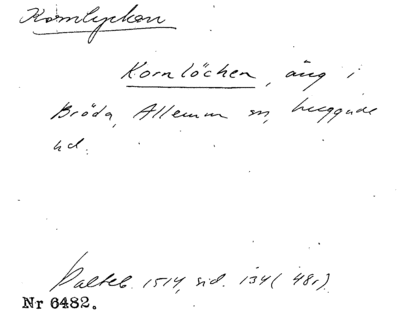 Kornlyckan
Kornlöchen, äng i
Bröda, Allerum sn, Luggude
hd.
Dalteb. 1514, sid. 134 (48r)
Nr 6482.